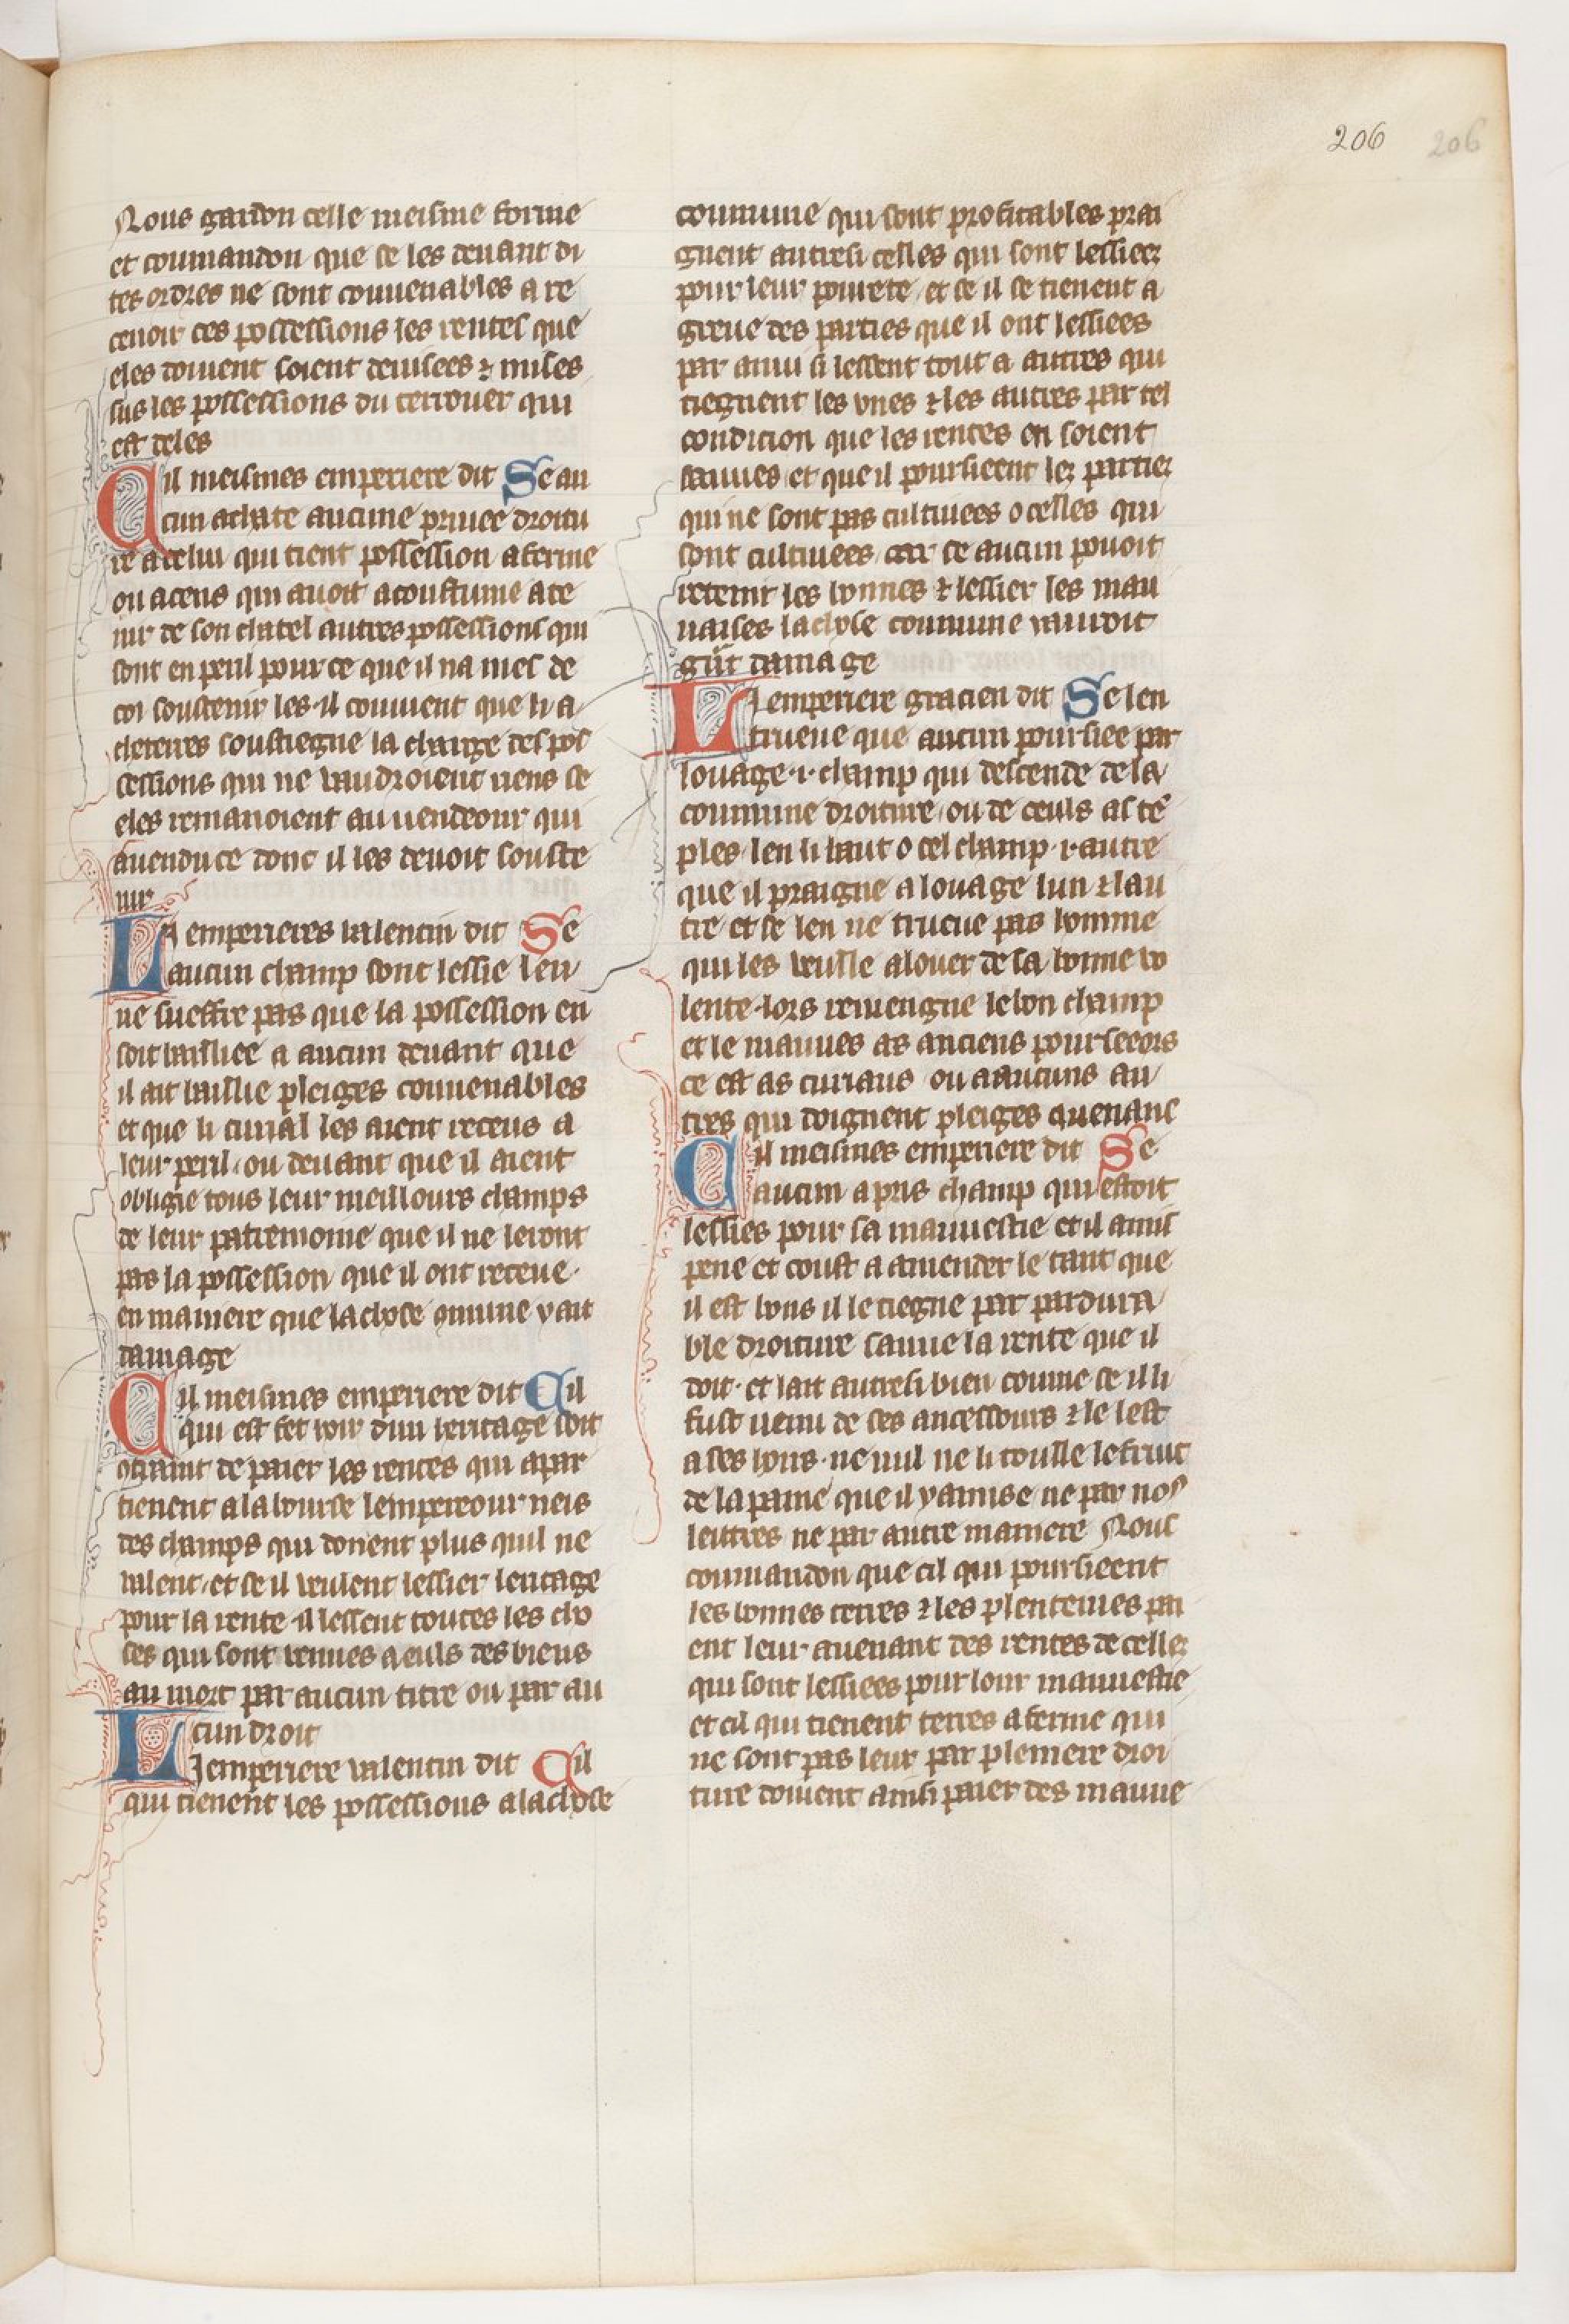 206 206
Nous gardon celle meisme forme
et coumandon que se les deuant di
tes ordres ne sont conuenables a re
ceuoir ces possessions les rentes que
eles doiuent soient deuisees ⁊ mises
sus les possessions du terrouer qui
est deles
Cil meismes emperiere dit Se au
cun achate aucune priuee droitu
re a celui qui tient possession a ferme
ou a cens qui auoit acoustume a te
nir de son chatel autres possessions qui
sont en peril pour ce que il na mes de
coi soustenir les il conuient que li a
cheterres soustiegne la charge des pos
sessions qui ne vaudroient riens se
eles remanoient au uendeour qui
a uendu ce dont il les deuoit souste
nir
Li emperieres valentin dit Se
aucun champ sont lessie len
ne sueffre pas que la possession en
soit bailliee a aucun deuant que
il ait baillie pleiges conuenables
et que li curial les aient receus a
leur peril ou deuant que il aient
obligie tous leur meillours champs
de leur patremoine que il ne leront
pas la possession que il ont receue
en maniere que la chose qmune y ait
damage
Cil meismes emperiere dit Cil
qui est fet hoir dun heritage soit
qtraint de paier les rentes qui apar
tienent a la bourse lempereour neis
des champs qui donent plus quil ne
valent et se il veulent lessier leritage
pour la rente il lessent toutes les cho
ses qui sont venues a euls des biens
au mort par aucun titre ou par au
cun droit
Li emperiere valentin dit Cil
qui tienent les possessions a la chose
coumune qui sont profitables prai
gnent autresi celles qui sont lessieez
pour leur pourete et se il se tienent a
greue des parties que il ont lessiees
par anui si lessent tout a autres qui
tiegnent les vnes ⁊ les autres par tel
condicion que les rentes en soient
sauues et que il poursieent lez partiez
qui ne sont pas cultiuees o celles qui
sont cultiuees car se aucun pouoit
retenir les bonnes ⁊ lessier les mau
uaises la chose coumune y auroit
gñt damage
Li emperiere gracien dit Se len
trueue que aucun poursiee par
louage .i. champ qui descende de la
coumune droiture ou de ceuls as tē
ples len li baut o cel champ .i. autre
que il praigne a louage lun ⁊ lau
tre et se len ne trueue pas homme
qui les veulle a louer de sa bonne vo
lente lors remengne le bon champ
et le mauues as anciens pourseeors
ce est as curiaus ou a aucuns au
tres qui doignent pleiges quenanc
Cil meismes emperiere dit Se
aucun a pris champ qui estoit
lessies pour sa mauuestie et il a mis
pene et coust a amender le tant que
il est bons il le tiegne par pardura
ble droiture sauue la rente que il
doit et lait autresi bien coume se il li
fust uenu de ses ancessours ⁊ le lest
a ses hoirs ne nul ne li toulle le fruit
de la paine que il y a mise ne par nos
lettres ne par autre maniere Nous
coumandon que cil qui poursieent
les bonnes terres ⁊ les plenteiues pai
ent leur auenant des rentes de cellez
qui sont lessiees pour lour mauuestie
et cil qui tienent terres a ferme qui
ne sont pas leur par pleniere droi
ture doiuent ainsi paier des mauue